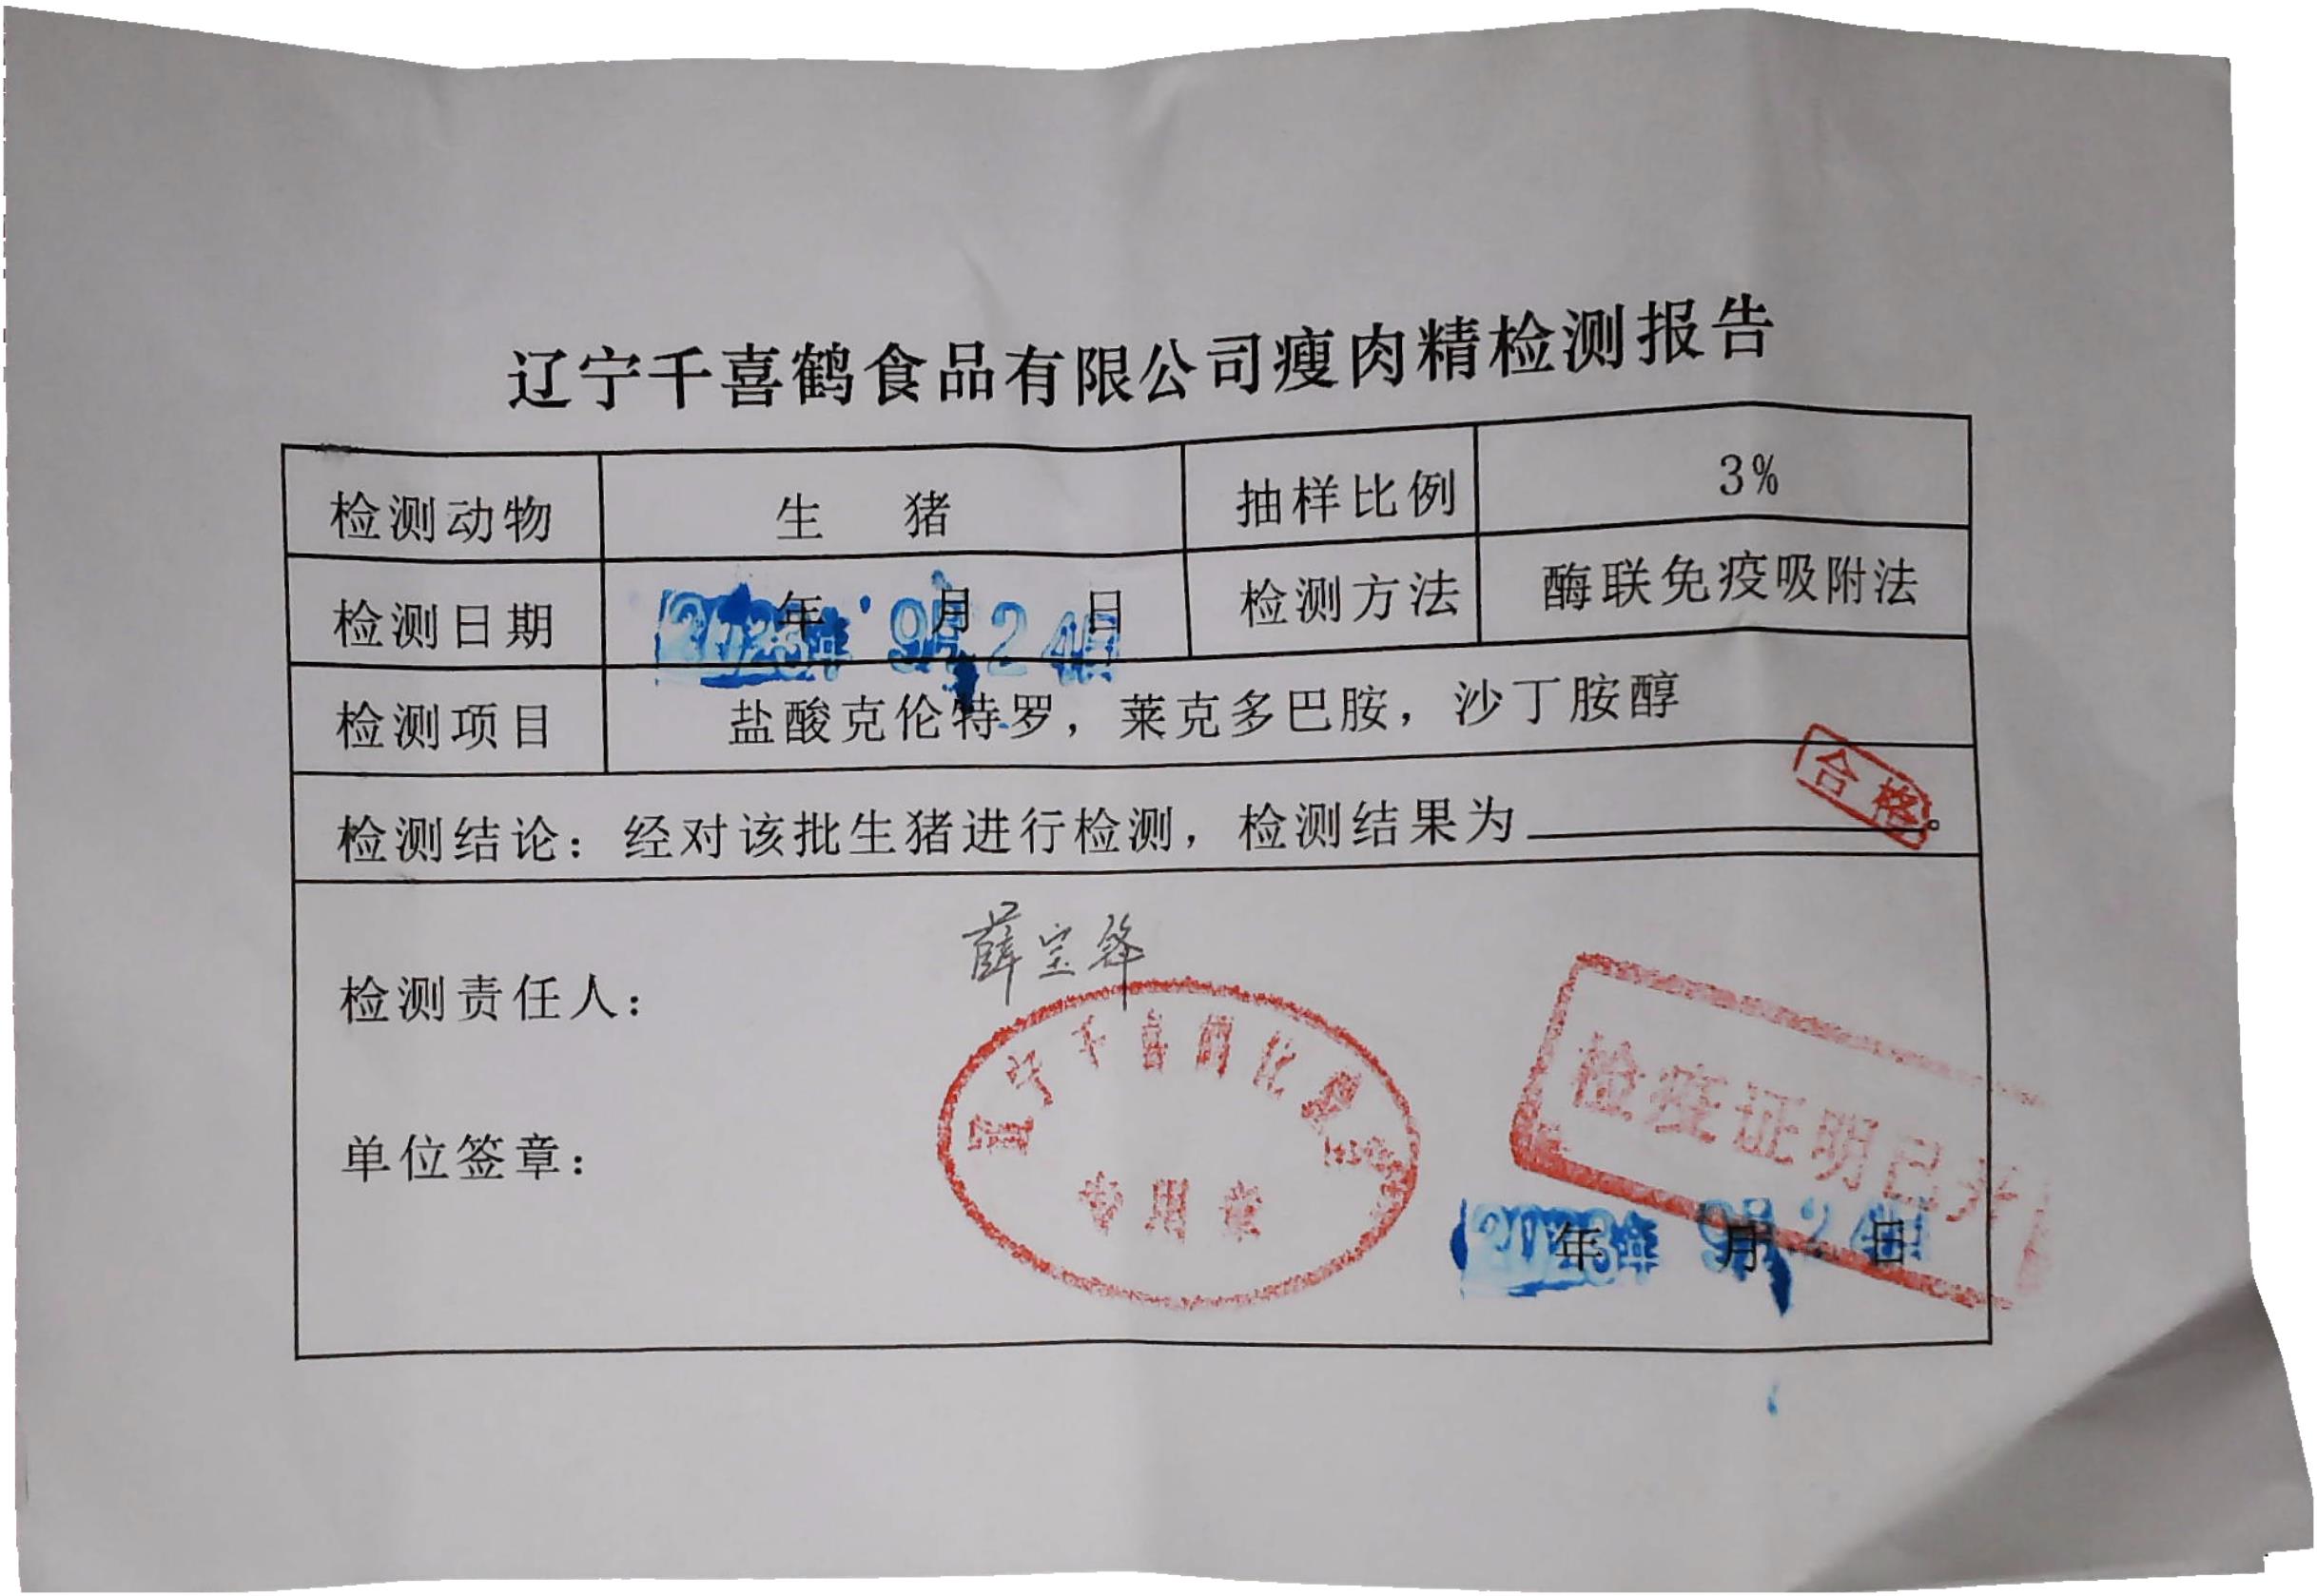 辽宁千喜鹤食品有限公司瘦肉精检测报告
检测动物 生 猪 抽样比例 3%
检测日期 年 月 日 检测方法 酶联免疫吸附法
2023年 9月24日
检测项目 盐酸克伦特罗，莱克多巴胺，沙丁胺醇
检测结论：经对该批生猪进行检测，检测结果为 合格。
检测责任人： 薛宝锋
单位签章：
辽宁千喜鹤
专用章
检疫证明已开
年 月 日
2023年 9月24日